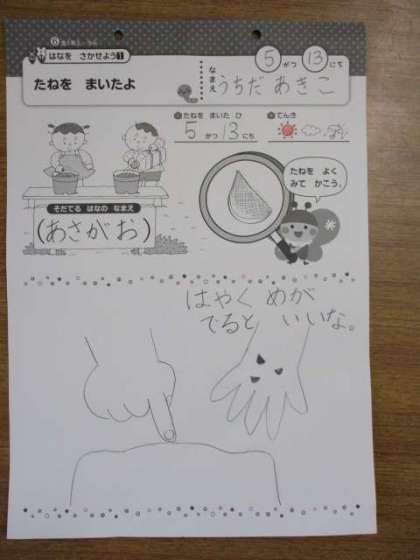 はなを さかせよう 1
5 がつ 13 にち
たねを まいたよ
なまえ うちだ あきこ
たねを まいた ひ
5 がつ 13 にち
てんき
たねを よく
みて かこう。
そだてる はなの なまえ
(あさがお)
はやく めが
でると いいな。